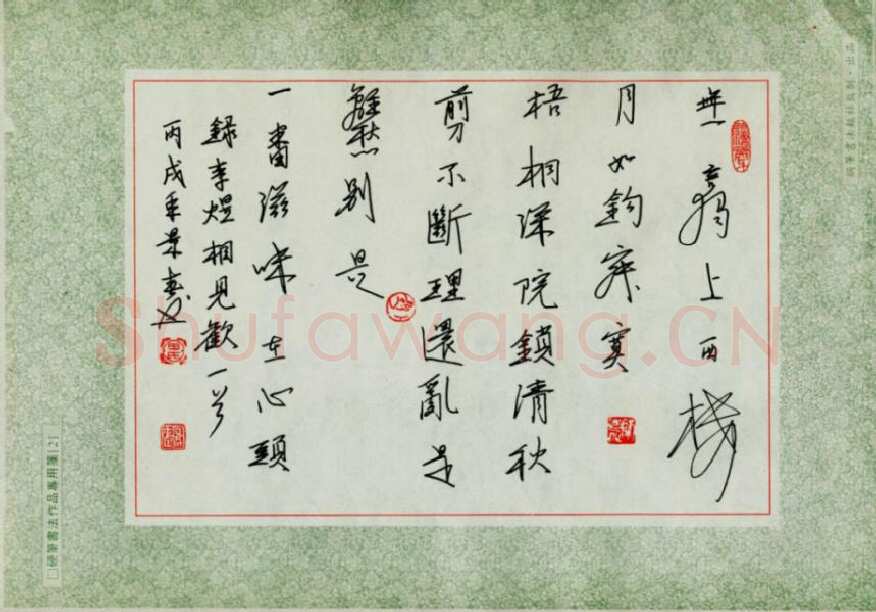 無言獨上西樓
月如鉤寂寞
梧桐深院鎖清秋
剪不斷理還亂是
離愁別是
一番滋味在心頭
錄李煜相見歡一首
丙戌
硬筆書法作品專用箋(2)
Shufawang.CN